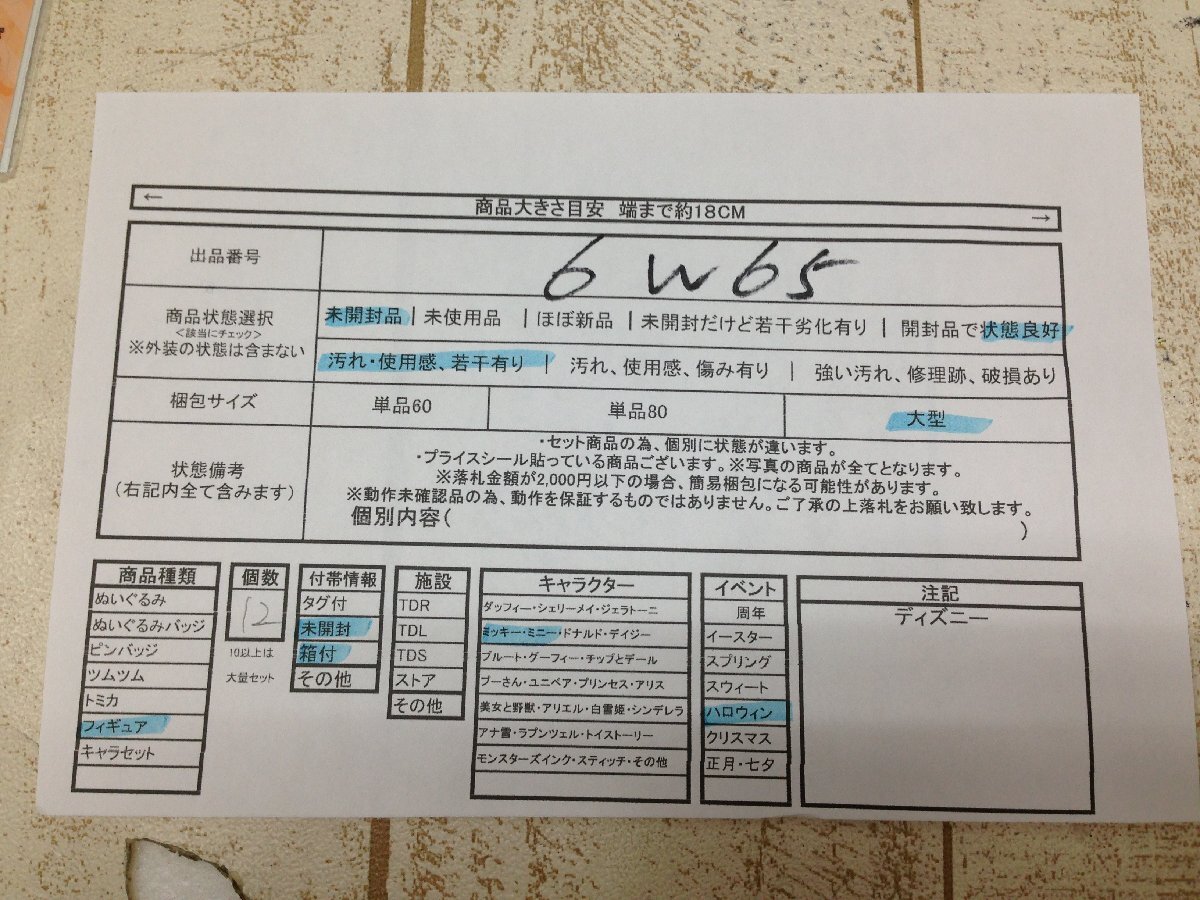 ← 商品大きさ目安 端まで約18CM →
出品番号 6W65
商品状態選択
<該当にチェック>
※外装の状態は含まない
未開封品 | 未使用品 | ほぼ新品 | 未開封だけど若干劣化有り | 開封品で状態良好
汚れ・使用感、若干有り | 汚れ、使用感、傷み有り | 強い汚れ、修理跡、破損あり
梱包サイズ 単品60 単品80 大型
状態備考
(右記内全て含みます)
・セット商品の為、個別に状態が違います。
・プライスシール貼っている商品ございます。※写真の商品が全てとなります。
※落札金額が2,000円以下の場合、簡易梱包になる可能性があります。
※動作未確認品の為、動作を保証するものではありません。ご了承の上落札をお願い致します。
個別内容( )
商品種類
ぬいぐるみ
ぬいぐるみバッジ
ピンバッジ
ツムツム
トミカ
フィギュア
キャラセット
個数
12
10以上は
大量セット
付帯情報
タグ付
未開封
箱付
その他
施設
TDR
TDL
TDS
ストア
その他
キャラクター
ダッフィー・シェリーメイ・ジェラトーニ
ミッキー・ミニー・ドナルド・デイジー
プルート・グーフィー・チップとデール
プーさん・ユニベア・プリンセス・アリス
美女と野獣・アリエル・白雪姫・シンデレラ
アナ雪・ラプンツェル・トイストーリー
モンスターズインク・スティッチ・その他
イベント
周年
イースター
スプリング
スウィート
ハロウィン
クリスマス
正月・七夕
注記
ディズニー